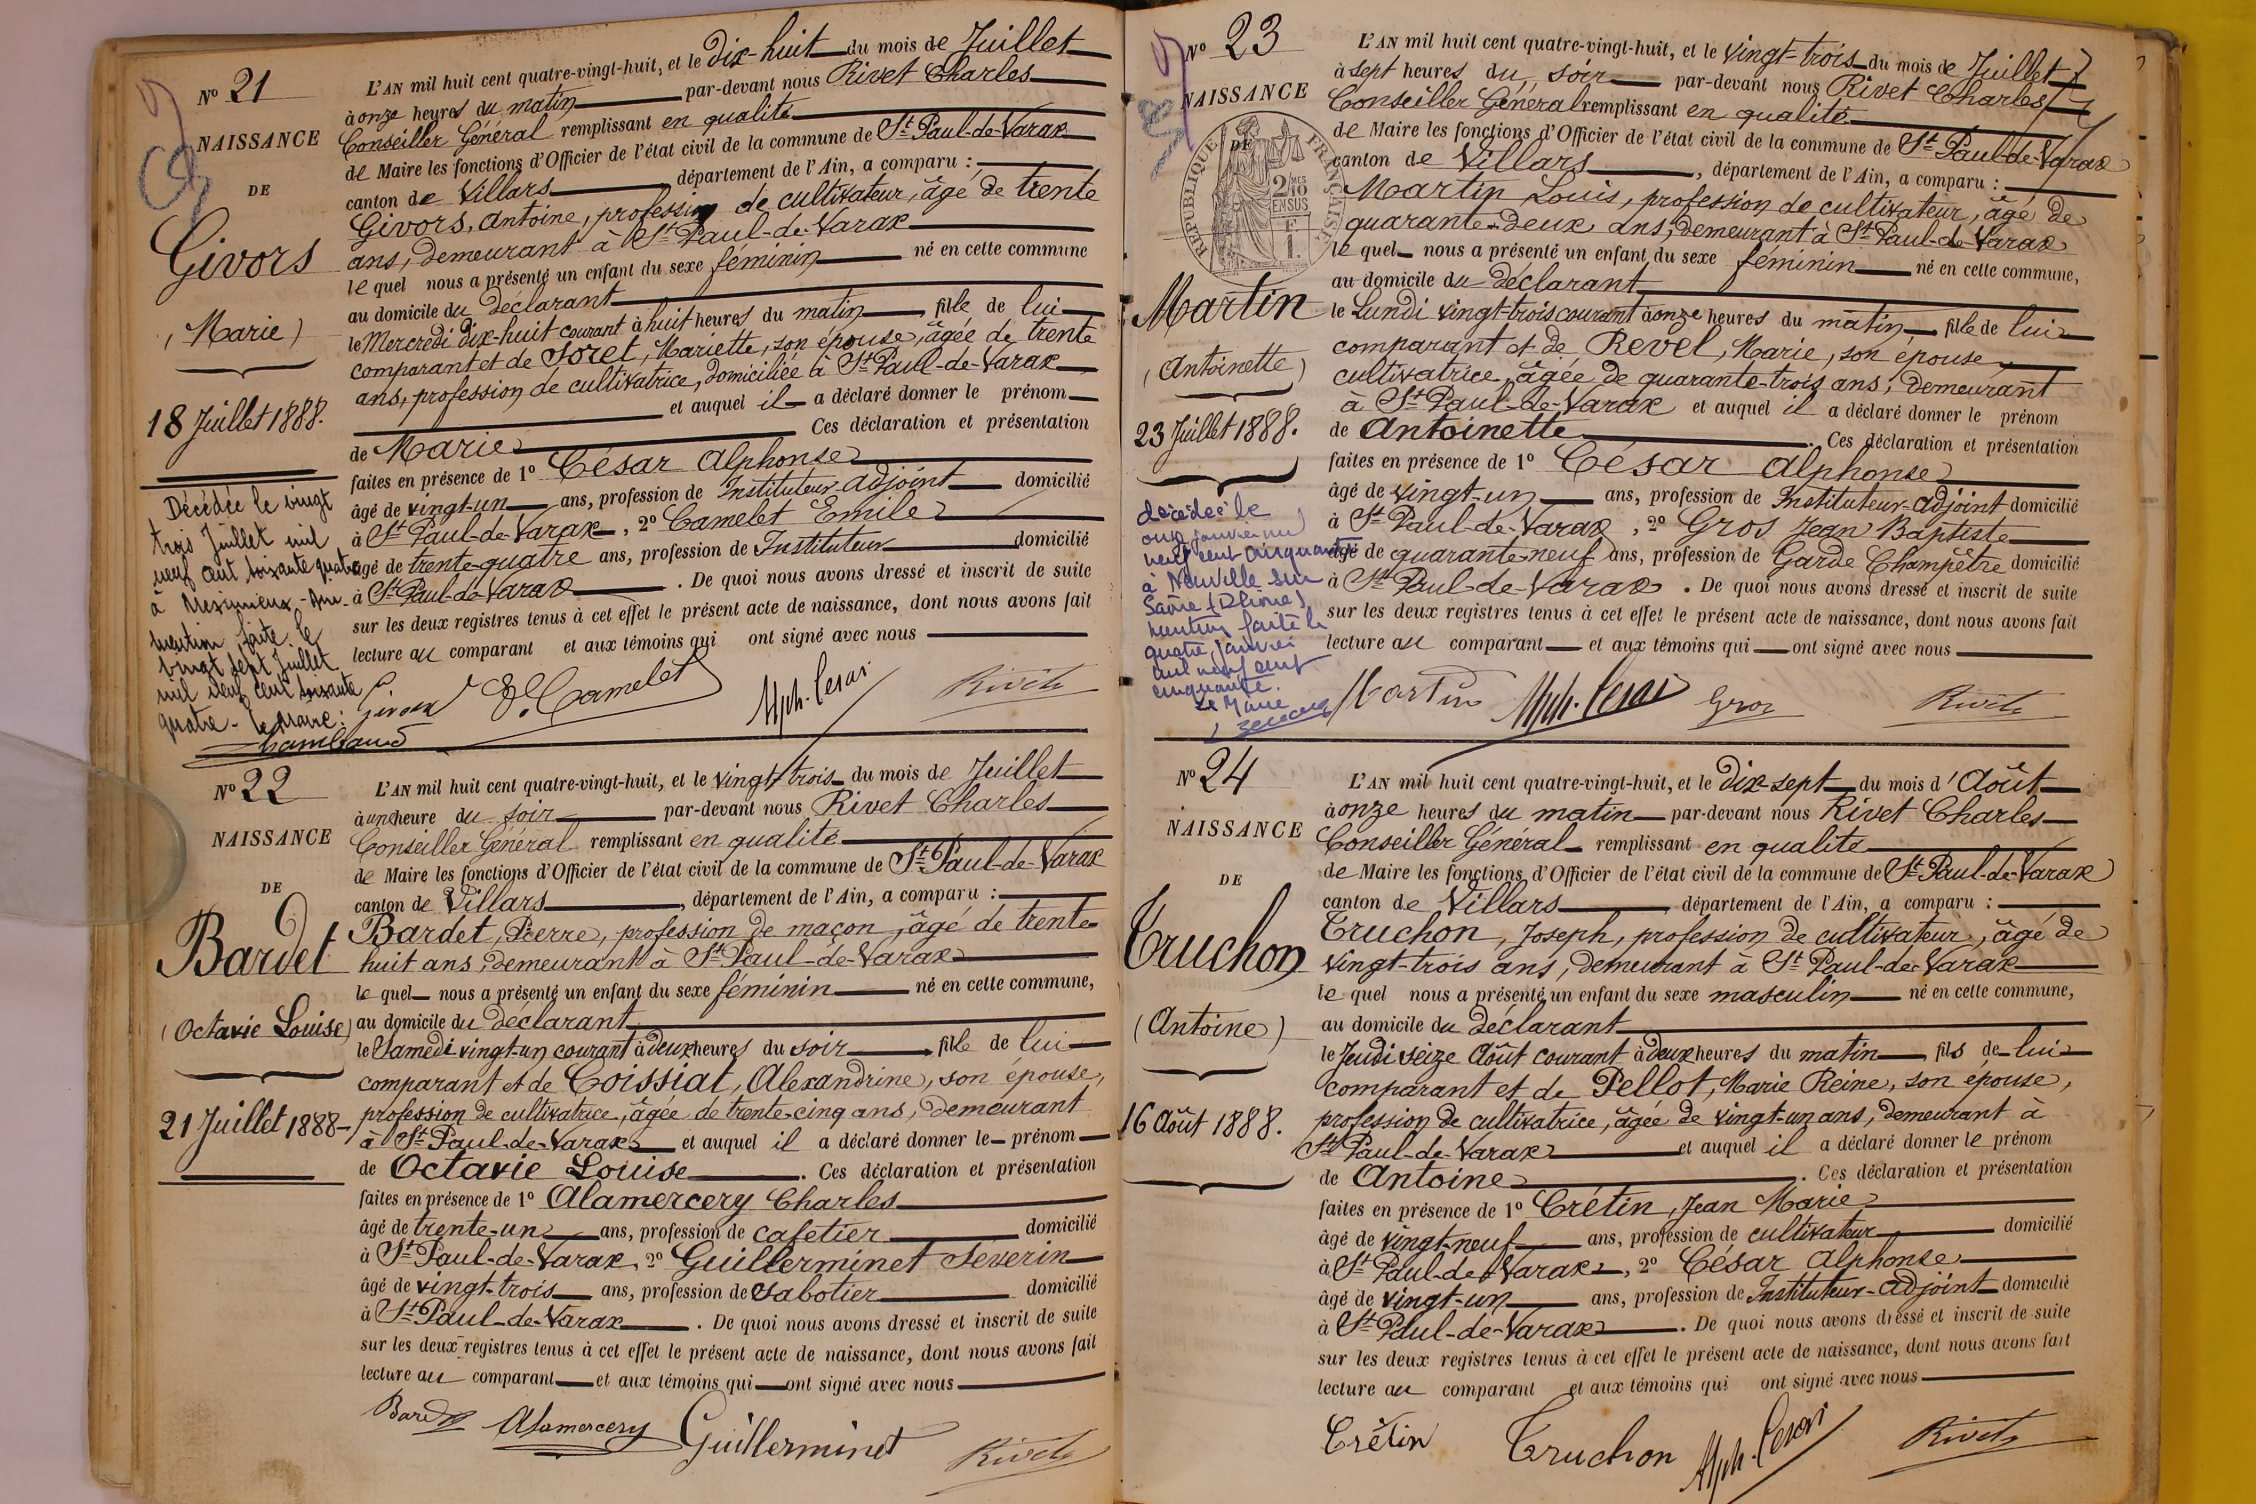 N° 21
NAISSANCE
DE
Givors
(Marie)
18 Juillet 1888.
Décédée le vingt
trois Juillet mil
neuf cent soixante quatre
à Meximieux - Ain -
mention faite le
vingt sept Juillet
mil neuf cent soixante
quatre - Le Maire :
L'AN mil huit cent quatre-vingt-huit, et le dix-huit du mois de Juillet
à onze heures du matin par-devant nous Rivet Charles
Conseiller Général remplissant en qualité
de Maire les fonctions d'Officier de l'état civil de la commune de St Paul-de-Varax
canton de Villars département de l'Ain, a comparu :
Givors, Antoine, profession de cultivateur, âgé de trente
ans, demeurant à St Paul-de-Varax
le quel nous a présenté un enfant du sexe féminin né en cette commune
au domicile du déclarant
le Mercredi dix-huit courant à huit heures du matin, fille de lui
comparant et de Joret, Mariette, son épouse, âgée de trente
ans, profession de cultivatrice, domiciliée à St Paul-de-Varax
et auquel il a déclaré donner le prénom
de Marie Ces déclaration et présentation
faites en présence de 1° César Alphonse
âgé de vingt-un ans, profession de Instituteur adjoint domicilié
à St Paul-de-Varax, 2° Camelet Emile
âgé de trente-quatre ans, profession de Instituteur domicilié
à St Paul-de-Varax. De quoi nous avons dressé et inscrit de suite
sur les deux registres tenus à cet effet le présent acte de naissance, dont nous avons fait
lecture au comparant et aux témoins qui ont signé avec nous
Givors E. Camelet Alph. Cesar Rivet
N° 22
NAISSANCE
DE
Bardet
(Octavie Louise)
21 Juillet 1888
L'AN mil huit cent quatre-vingt-huit, et le vingt-trois du mois de Juillet
à une heure du soir par-devant nous Rivet Charles
Conseiller Général remplissant en qualité
de Maire les fonctions d'Officier de l'état civil de la commune de St Paul-de-Varax
canton de Villars, département de l'Ain, a comparu :
Bardet, Pierre, profession de maçon, âgé de trente
huit ans, demeurant à St Paul-de-Varax
le quel nous a présenté un enfant du sexe féminin né en cette commune,
au domicile du déclarant
le Samedi vingt-un courant à deux heures du soir, fille de lui
comparant et de Coissiat, Alexandrine, son épouse,
profession de cultivatrice, âgée de trente-cinq ans, demeurant
à St Paul-de-Varax et auquel il a déclaré donner le prénom
de Octavie Louise. Ces déclaration et présentation
faites en présence de 1° Alamercery Charles
âgé de trente-un ans, profession de cafetier domicilié
à St Paul-de-Varax, 2° Guillerminet Séverin
âgé de vingt-trois ans, profession de sabotier domicilié
à St Paul-de-Varax. De quoi nous avons dressé et inscrit de suite
sur les deux registres tenus à cet effet le présent acte de naissance, dont nous avons fait
lecture au comparant et aux témoins qui ont signé avec nous
Bardet Alamercery Guillerminet Rivet
N° 23
NAISSANCE
DE
RÉPUBLIQUE FRANÇAISE
2/10 EN SUS
Martin
(Antoinette)
23 Juillet 1888.
décédée le
onze janvier mil
neuf cent cinquante
à Neuville sur
Saône (Rhône)
mention faite le
quatre janvier
mil neuf cent
cinquante.
Le Maire
L'AN mil huit cent quatre-vingt-huit, et le vingt-trois du mois de Juillet
à sept heures du soir par-devant nous Rivet Charles
Conseiller Général remplissant en qualité
de Maire les fonctions d'Officier de l'état civil de la commune de St Paul-de-Varax
canton de Villars, département de l'Ain, a comparu :
Martin Louis, profession de cultivateur, âgé de
quarante-deux ans, demeurant à St Paul-de-Varax
le quel nous a présenté un enfant du sexe féminin né en cette commune,
au domicile du déclarant
le Lundi vingt-trois courant à onze heures du matin fille de lui
comparant et de Revel, Marie, son épouse,
cultivatrice, âgée de quarante-trois ans, demeurant
à St Paul-de-Varax et auquel il a déclaré donner le prénom
de Antoinette. Ces déclaration et présentation
faites en présence de 1° César Alphonse
âgé de vingt-un ans, profession de Instituteur-adjoint domicilié
à St Paul-de-Varax, 2° Gros Jean Baptiste
âgé de quarante-neuf ans, profession de Garde Champêtre domicilié
à St Paul-de-Varax. De quoi nous avons dressé et inscrit de suite
sur les deux registres tenus à cet effet le présent acte de naissance, dont nous avons fait
lecture au comparant et aux témoins qui ont signé avec nous
Martin Alph. Cesar Gros Rivet
N° 24
NAISSANCE
DE
Truchon
(Antoine)
16 Août 1888.
L'AN mil huit cent quatre-vingt-huit, et le dix-sept du mois d'Août
à onze heures du matin par-devant nous Rivet Charles
Conseiller Général remplissant en qualité
de Maire les fonctions d'Officier de l'état civil de la commune de St Paul-de-Varax
canton de Villars département de l'Ain, a comparu :
Truchon, Joseph, profession de cultivateur, âgé de
vingt-trois ans, demeurant à St Paul-de-Varax
le quel nous a présenté un enfant du sexe masculin né en cette commune,
au domicile du déclarant
le Jeudi seize Août courant à deux heures du matin, fils de lui
comparant et de Pellot, Marie Reine, son épouse,
profession de cultivatrice, âgée de vingt-un ans, demeurant à
St Paul-de-Varax et auquel il a déclaré donner le prénom
de Antoine. Ces déclaration et présentation
faites en présence de 1° Crétin, Jean Marie
âgé de vingt-neuf ans, profession de cultivateur domicilié
à St Paul-de-Varax, 2° César Alphonse
âgé de vingt-un ans, profession de Instituteur-adjoint domicilié
à St Paul-de-Varax. De quoi nous avons dressé et inscrit de suite
sur les deux registres tenus à cet effet le présent acte de naissance, dont nous avons fait
lecture au comparant et aux témoins qui ont signé avec nous
Crétin Truchon Alph. Cesar Rivet